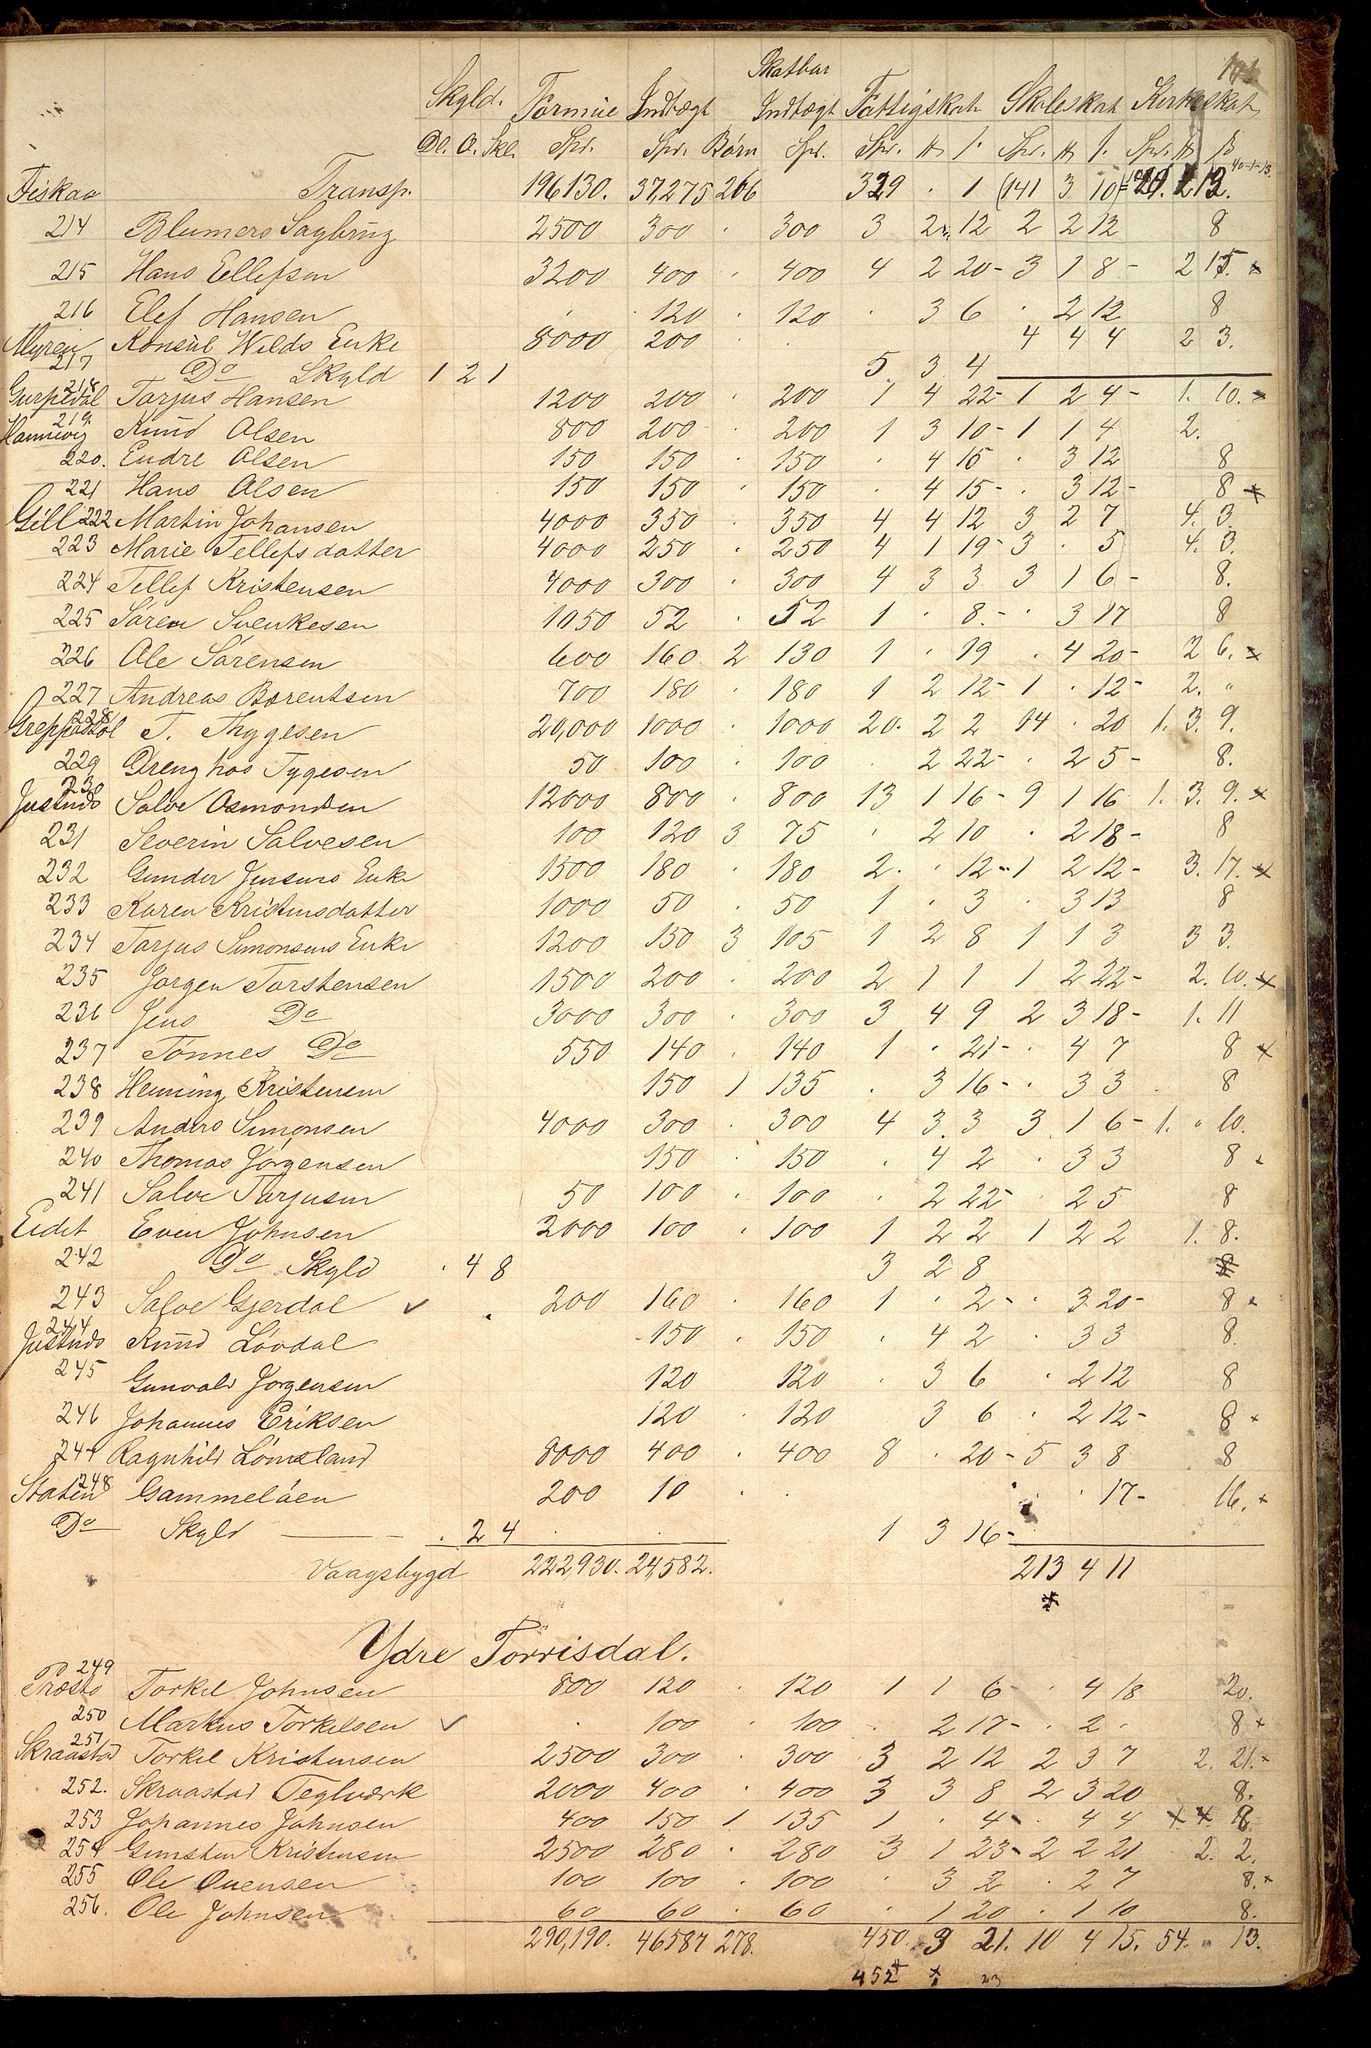 Skatbar
Skyld. Formue Indtægt Indtægt Fattigskat Skoleskat Kirkeskat
Dl. O. Skl. Spr. Spr. Børn Spr. Spr. Spr. Spr.
40-1-13.
Fiskaa Transp. 196130. 37,275 206 329 . 1 141 3 10 212.
214 Blumers Sagbrug 2500 300 . 300 3 2 12 2 2 12 8
215 Hans Ellefsen 3200 400 . 400 4 2 20 - 3 1 8 - 2 15. x
216 Elef Hansen 120 . 120 . 3 6 . 2 12 8
Myren 217 Konsul Wilds Enke 8000 200 4 4 4 2 3.
Do Skyld 1 2 1 5 3 4
Gurpedal 218 Tarjus Hansen 1200 200 . 200 1 4 22 - 1 2 4 - 1. 10. x
Hannevig 219. Knud Olsen 800 200 200 1 3 10 - 1 1 4 2.
220. Endre Olsen 150 150 . 150 . 4 15 . 3 12 8
221 Hans Olsen 150 150 . 150 . 4 15 - . 3 12 - 8 x
Gill 222 Martin Johansen 4000 350 . 350 4 4 12 3 2 7 4. 3.
223 Marie Tellefsdatter 4000 250 . 250 4 1 19 - 3 . 5 4. 3.
224 Tellef Kristensen 4000 300 . 300 4 3 3 3 1 6 - 8.
225 Søren Svenkesen 1050 52 . 52 1 . 8. . 3 17 8
226 Ole Sørensen 600 160 2 130 1 . 19 . 4 20 - 2 6. x
227 Andreas Bærentsen 700 180 . 180 1 2 12 - 1 . 12 - 2. "
Greppestøl 228 T. Thygesen 20,000 1000 . 1000 20. 2 2 14 . 20 1. 3. 9.
229 Dreng hos Tygesen 50 100 . 100 . 2 22 - . 2 5 - 8.
Justnes 230 Salve Osmondsen 12000 800 . 800 13 1 16 - 9 1 16 1. 3. 9. x
231 Severin Salvesen 100 120 3 75 . 2 10 . 2 18 - 8
232 Gunder Jensens Enke 1500 180 . 180 2. . 12 - 1 2 12 - 3. 17. x
233 Karen Kristensdatter 1000 50 . 50 1 . 3 . 3 13 8
234 Tarjus Simonsens Enke 1200 150 3 105 1 2 8 1 1 3 3 3.
235 Jørgen Torstensen 1500 200 . 200 2 1 1 1 2 22 - 2. 10. x
236 Jens Do 3000 300 . 300 3 4 9 2 3 18 - 1. 11
237 Tønnes Do 550 140 . 140 1 . 21 - . 4 7 8 x
238 Henning Kristensen 150 1 135 . 3 16 - . 3 3 . 8
239 Anders Simonsen 4000 300 . 300 4 3. 3 3. 1 6 - 1. " 10.
240 Thomas Jørgensen 150 . 150 . 4 2 . 3 3 8 x
241 Salve Tarjusen 50 100 . 100 . 2 22 - . 2 5 8
Eidet Even Johnsen 2000 100 . 100 1 2 2 1 2 2 1. 8.
242 Do Skyld . 4 8 3 2 8
243 Salve Gjerdal ✓ 200 160 . 160 1 . 2 - . 3 20 - 8 x
Justnes 244 Knud Løvdal 150 . 150 . 4 2 . 3 3 8.
245 Gunvald Jørgensen 120 120 . 3 6 . 2 12 8
246 Johannes Eriksen 120 . 120 3 6 . 2 12 - 8 x
247 Ragnhild Lømsland 8000 400 . 400 8 . 20 - 5 3 8 8
Staten 248 Gammelåen 200 10 . . . . 17 - 16. x
Do Skyld . 2 4 1 3 16 -
Vaagsbygd 222930. 24,582. 213 4 11
x
Ydre Torrisdal.
Præstø 249 Torkel Johnsen 800 120 . 120 1 1 6 - . 4 18 20.
250 Markus Torkelsen ✓ . 100 . 100 . 2 17 - . 2 . 8 x
Skraastad 251 Torkel Kristensen 2500 300 . 300 3 2 12 2 3 7 2. 21. x
252. Skraastad Teglværk 2000 400 . 400 3 3 8 2 3 20 8.
253 Johannes Johnsen 400 150 1 135 1 . 4 - . 4 4 x x 8
254 Gunsten Kristensen 2500 280 . 280 3 1 23 - 2 2 21 2. 2.
255 Ole Ouensen 100 100 . 100 . 3 2 . 2 7 8. x
256. Ole Johnsen 60 60 . 60 . 1 20 . 1 10 8.
290,190. 46587 278. 450. 3 21. 10 4 15. 54. " 13.
452 x x 23